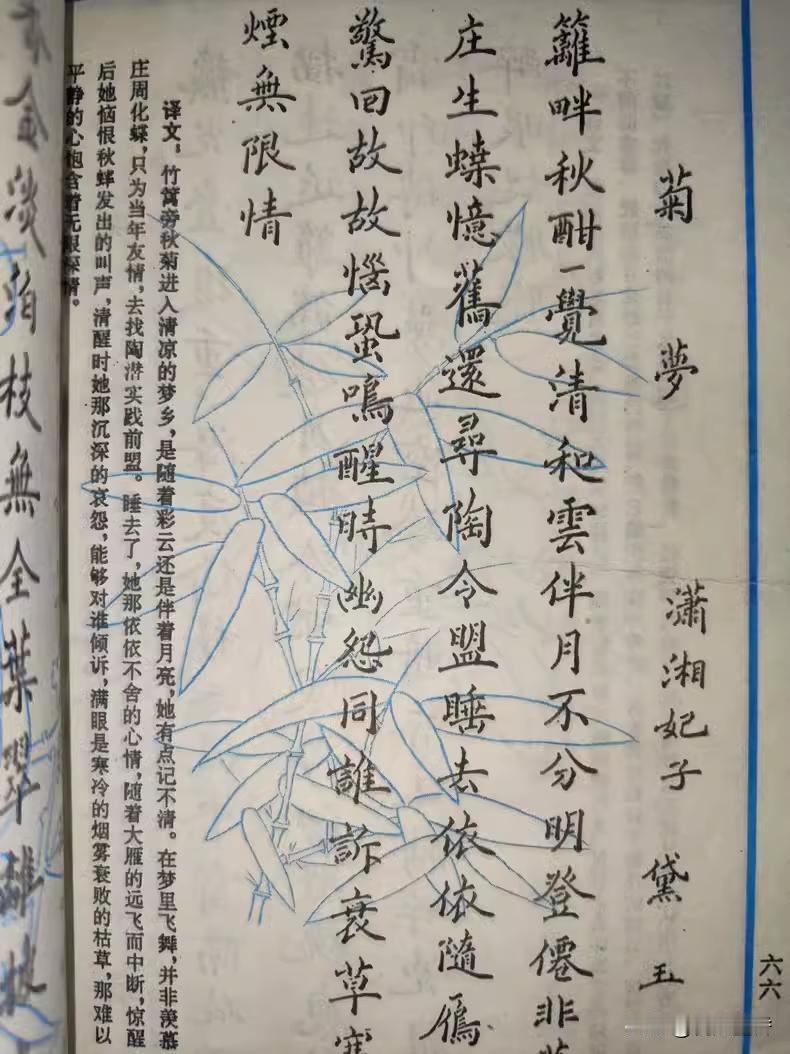 菊夢 瀟湘妃子 黛玉
籬畔秋酣一覺清和雲伴月不分明登僊非
庄生蝶憶舊還尋陶令盟睡去依依隨鴈
驚回故故惱蛩鳴醒時幽怨同誰訴衰草寒
煙無限情
译文：竹篱旁秋菊进入清凉的梦乡，是随着彩云还是伴着月亮，她有点记不清。在梦里飞舞，并非羡慕
庄周化蝶，只为当年友情，去找陶潜实践前盟。睡去了，她那依依不舍的心情，随着大雁的远飞而中断，惊醒
后她恼恨秋蟀发出的叫声，清醒时她那沉深的哀怨，能够对谁倾诉，满眼是寒冷的烟雾衰败的枯草，那难以
平静的心饱含着无限深情。
六六
金淡泊枝無全葉翠離披